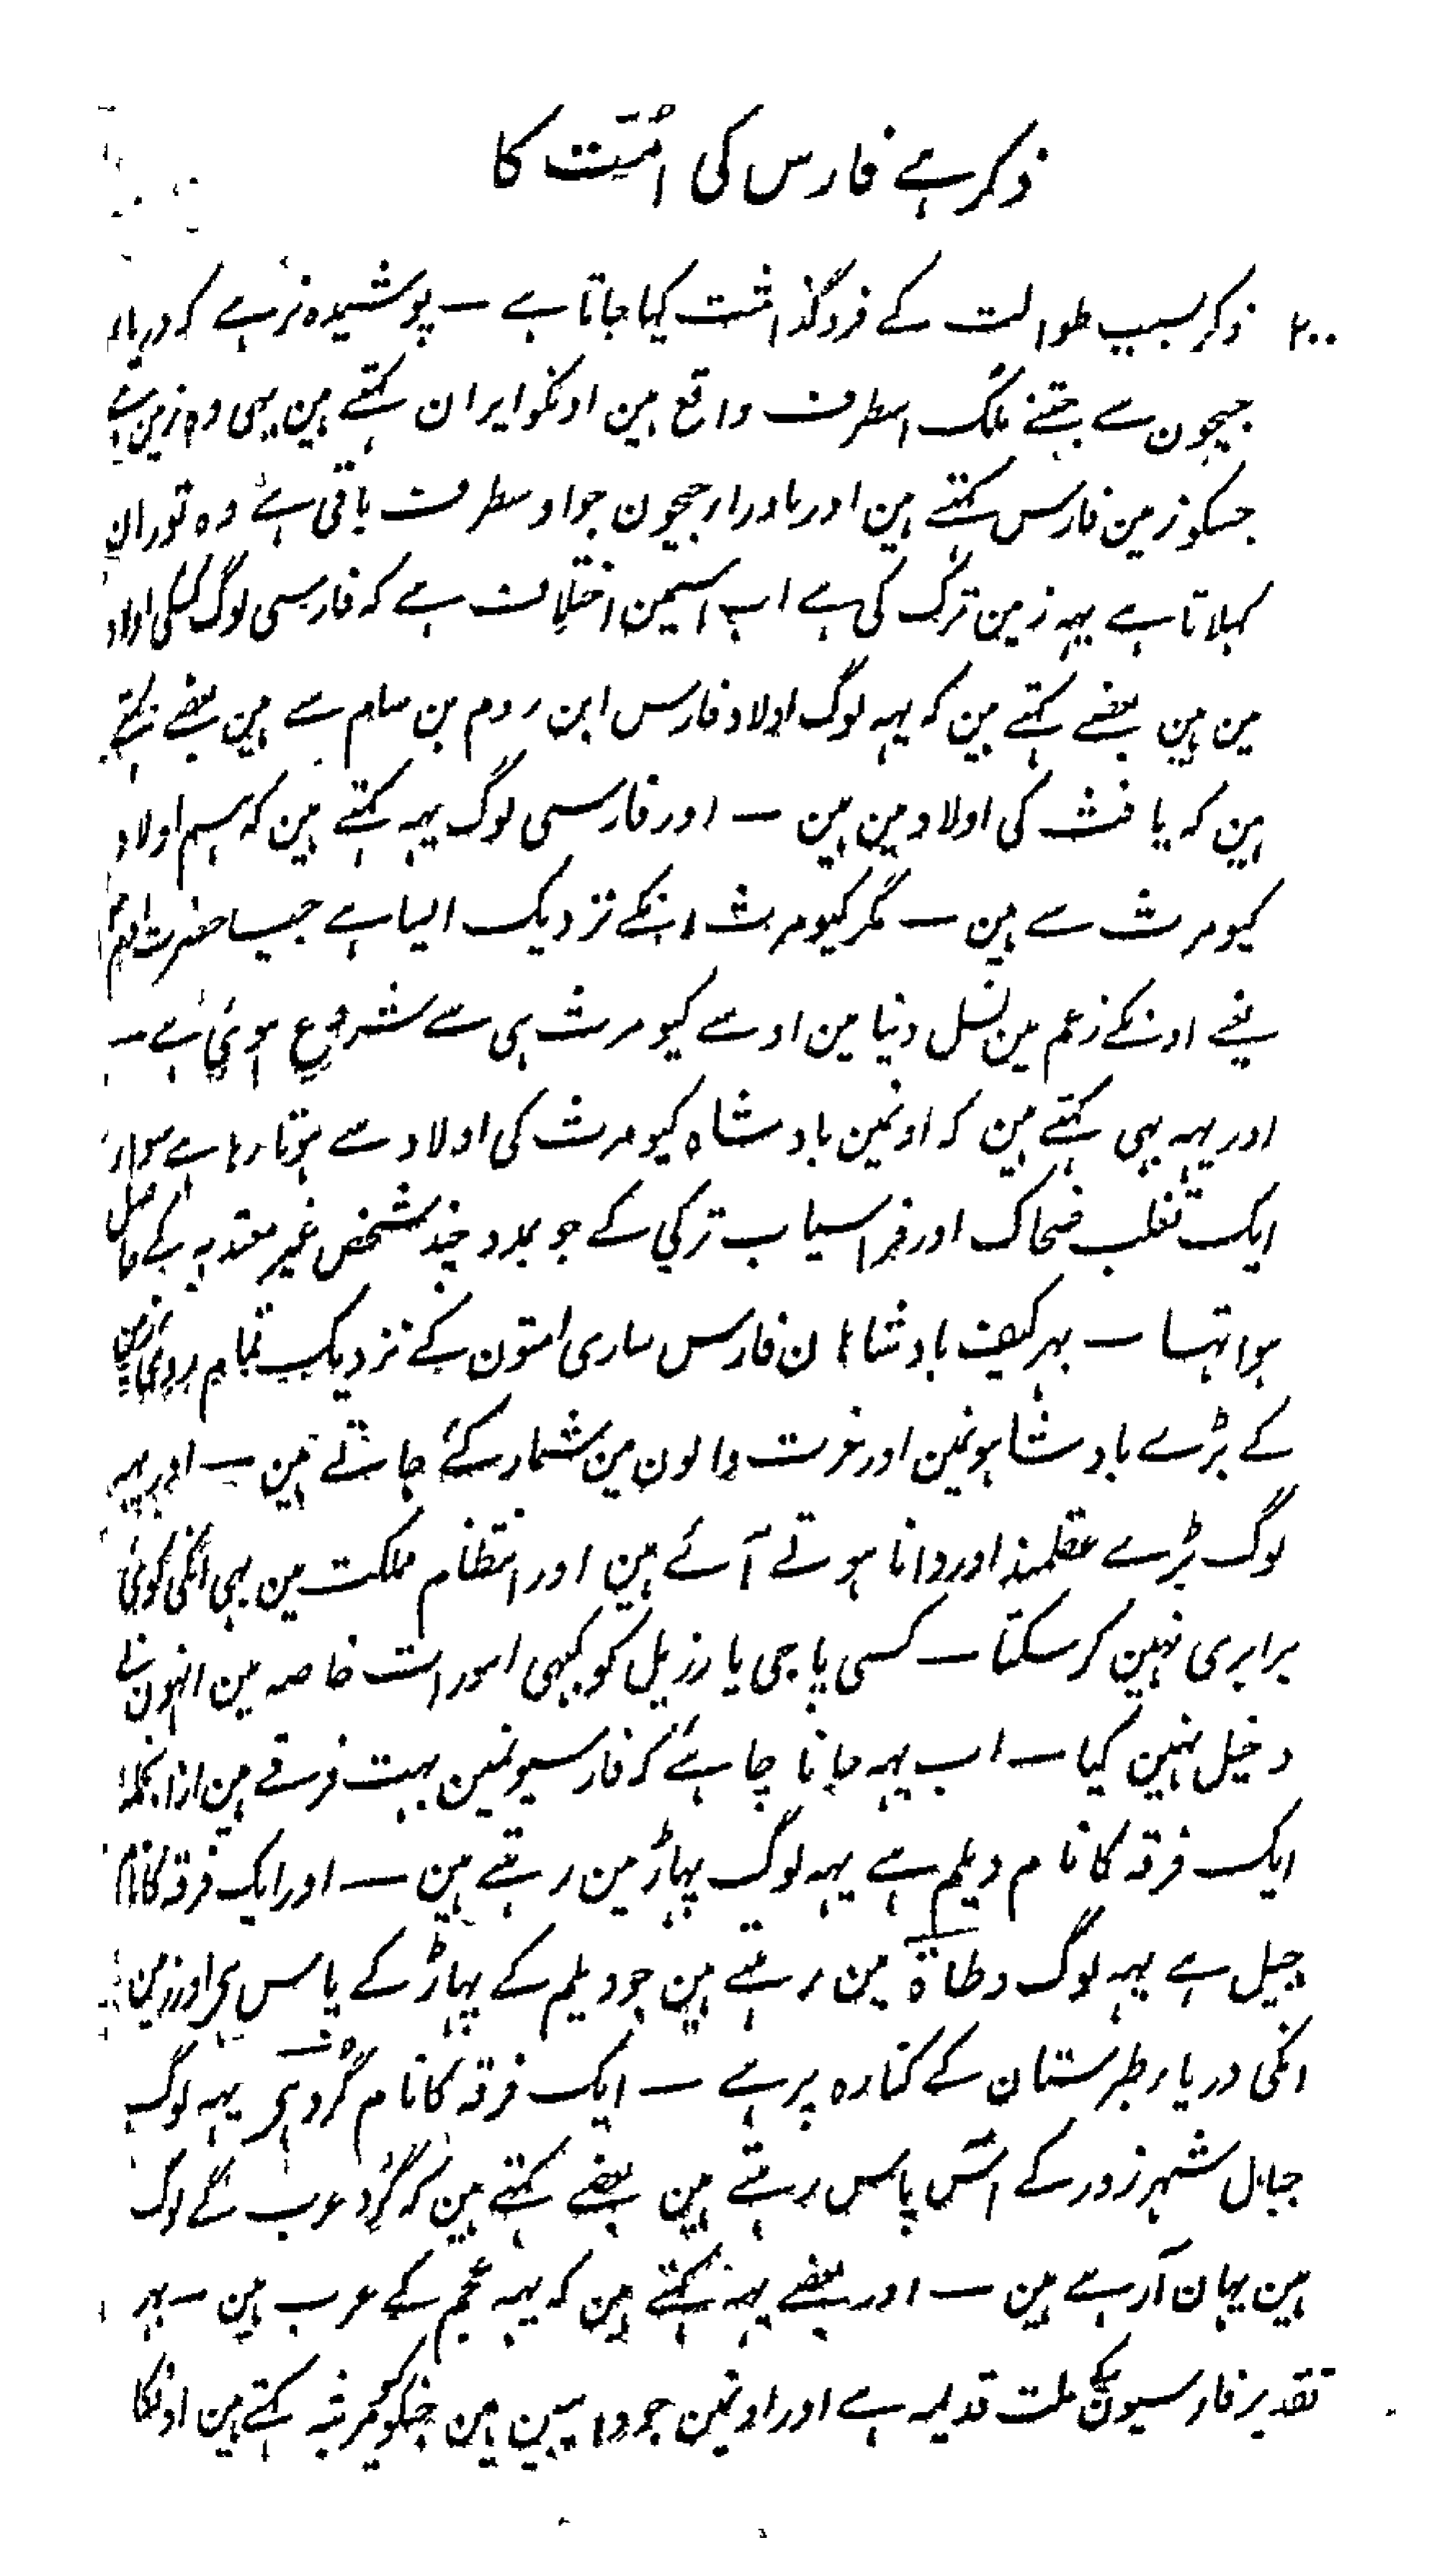 ذکر ہے فارس کی امّت کا
۲۰۰ ذکر بسبب طوالت کے فروگذاشت کیا جاتا ہے — پوشیدہ نرہے کہ دریاء
جیحون سے جتنے ملک اسطرف واقع ہین اونکو ایران کہتے ہین یہی وہ زمین ہے
جسکو زمین فارس کہتے ہین اور ماوراء جیحون جو اوسطرف باقی ہے وہ توران
کہلاتا ہے یہہ زمین ترک کی ہے اب اسیمن اختلاف ہے کہ فارسی لوگ کسکی اولاد
مین ہین بعضے کہتے ہین کہ یہہ لوگ اولاد فارس ابن روم بن سام سے ہین بعضے کہتے
ہین کہ یافث کی اولاد مین ہین — اور فارسی لوگ یہہ کہتے ہین کہ ہم اولاد
کیومرث سے ہین — مگر کیومرث انکے نزدیک ایسا ہے جیسا حضرت آدم
یعنے اونکے زعم مین نسل دنیا مین اوسے کیومرث ہی سے شروع ہوئی ہے —
اور یہہ بہی کہتے ہین کہ اونمین بادشاہ کیومرث کی اولاد سے ہوتا رہا ہے سواء
ایک تغلب ضحاک اور فراسیاب ترکی کے جو بمدد چند شخص غیر معتدبہ کے حاصل
ہوا تہا — بہرکیف بادشاہان فارس ساری امتون کے نزدیک تمام روئی زمین
کے بڑے بادشاہونمین اور عزت والون مین شمار کئے جاتے ہین — اور یہہ
لوگ بڑے عقلمند اور دانا ہوتے آئے ہین اور انتظام مملکت مین بہی انکی کوئی
برابری نہین کر سکتا — کسی پاجی یا رزیل کو کبہی امورات خاصہ مین انہون نے
دخیل نہین کیا — اب یہہ جانا چاہئے کہ فارسیونمین بہت فرقے ہین ازانجملہ
ایک فرقہ کا نام دیلم ہے یہہ لوگ پہاڑ مین رہتے ہین — اور ایک فرقہ کا نام
جیل ہے یہہ لوگ وطاۃ مین رہتے ہین جو دیلم کے پہاڑ کے پاس ہی اور زمین
انکی دریاء طبرستان کے کنارہ پر ہے — ایک فرقہ کا نام کُرد ہی یہہ لوگ
جبال شہرزور کے آس پاس رہتے ہین بعضے کہتے ہین کہ کُرد عرب کے لوگ
ہین یہان آرہے ہین — اور بعضے یہہ کہتے ہین کہ یہہ عجم کے عرب ہین — بہر
تقدیر فارسیون کی ملت قدیمہ ہے اور اونمین جو ہین جنکو کیومرثیہ کہتے ہین اونکا